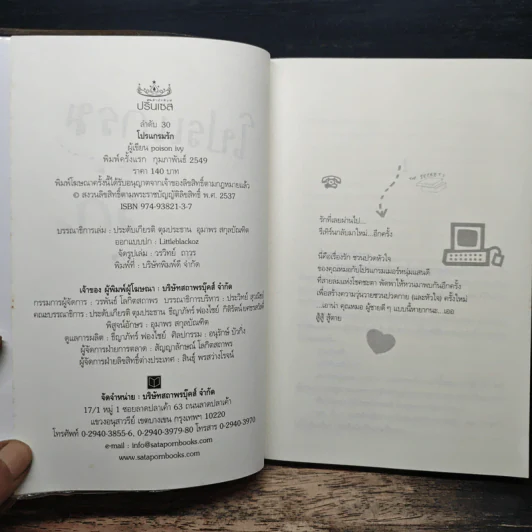 ปริ๊นเซส
ลำดับ 30
โปรแกรมรัก
ผู้เขียน poison ivy
พิมพ์ครั้งแรก กุมภาพันธ์ 2549
ราคา 140 บาท
พิมพ์โฆษณาครั้งนี้ได้รับอนุญาตจากเจ้าของลิขสิทธิ์ตามกฎหมายแล้ว
© สงวนลิขสิทธิ์ตามพระราชบัญญัติลิขสิทธิ์ พ.ศ. 2537
ISBN 974-93821-3-7
บรรณาธิการเล่ม : ประดับเกียรติ ตุมประธาน อุมาพร สกุลบัณฑิต
ออกแบบปก : Littleblackoz
จัดรูปเล่ม : วรวิทย์ ถาวร
พิมพ์ที่ : บริษัทพิมพ์ดี จำกัด
เจ้าของ ผู้พิมพ์ผู้โฆษณา : บริษัทสถาพรบุ๊คส์ จำกัด
กรรมการผู้จัดการ : วรพันธ์ โลกิตสถาพร บรรณาธิการบริหาร : ประวิทย์
คณะบรรณาธิการ : ประดับเกียรติ ตุมประธาน ชีญาภัทร์ ฟองไชย์
พิสูจน์อักษร : อุมาพร สกุลบัณฑิต
ดูแลการผลิต : ชีญาภัทร์ ฟองไชย์ ศิลปกรรม : อนุรักษ์ บัวกิ่ง
ผู้จัดการฝ่ายการตลาด : สัญญาลักษณ์ โลกิตสถาพร
ผู้จัดการฝ่ายลิขสิทธิ์ต่างประเทศ : สินธุ์ พรสว่างโรจน์
จัดจำหน่าย : บริษัทสถาพรบุ๊คส์ จำกัด
17/1 หมู่ 1 ซอยลาดปลาเค้า 63 ถนนลาดปลาเค้า
แขวงอนุสาวรีย์ เขตบางเขน กรุงเทพฯ 10220
โทรศัพท์ 0-2940-3855-6, 0-2940-3979-80 โทรสาร 0-2940-3970
e-mail : info@satapornbooks.com
www.satapornbooks.com
รักที่เลยผ่านไป...
รีเทิร์นกลับมาใหม่...อีกครั้ง
นี่คือเรื่องรัก ชวนปวดหัวใจ
ของคุณหมอกับโปรแกรมเมอร์หนุ่มแสนดี
ที่สายลมแห่งโชคชะตา พัดพาให้หวนมาพบกันอีกครั้ง
เพื่อสร้างความวุ่นวายชวนปวดกาย (และหัวใจ) ครั้งใหม่
...เอาน่า คุณหมอ ผู้ชายดีๆ แบบนี้หายากนะ...เออ
สู้สู้ สู้ตาย